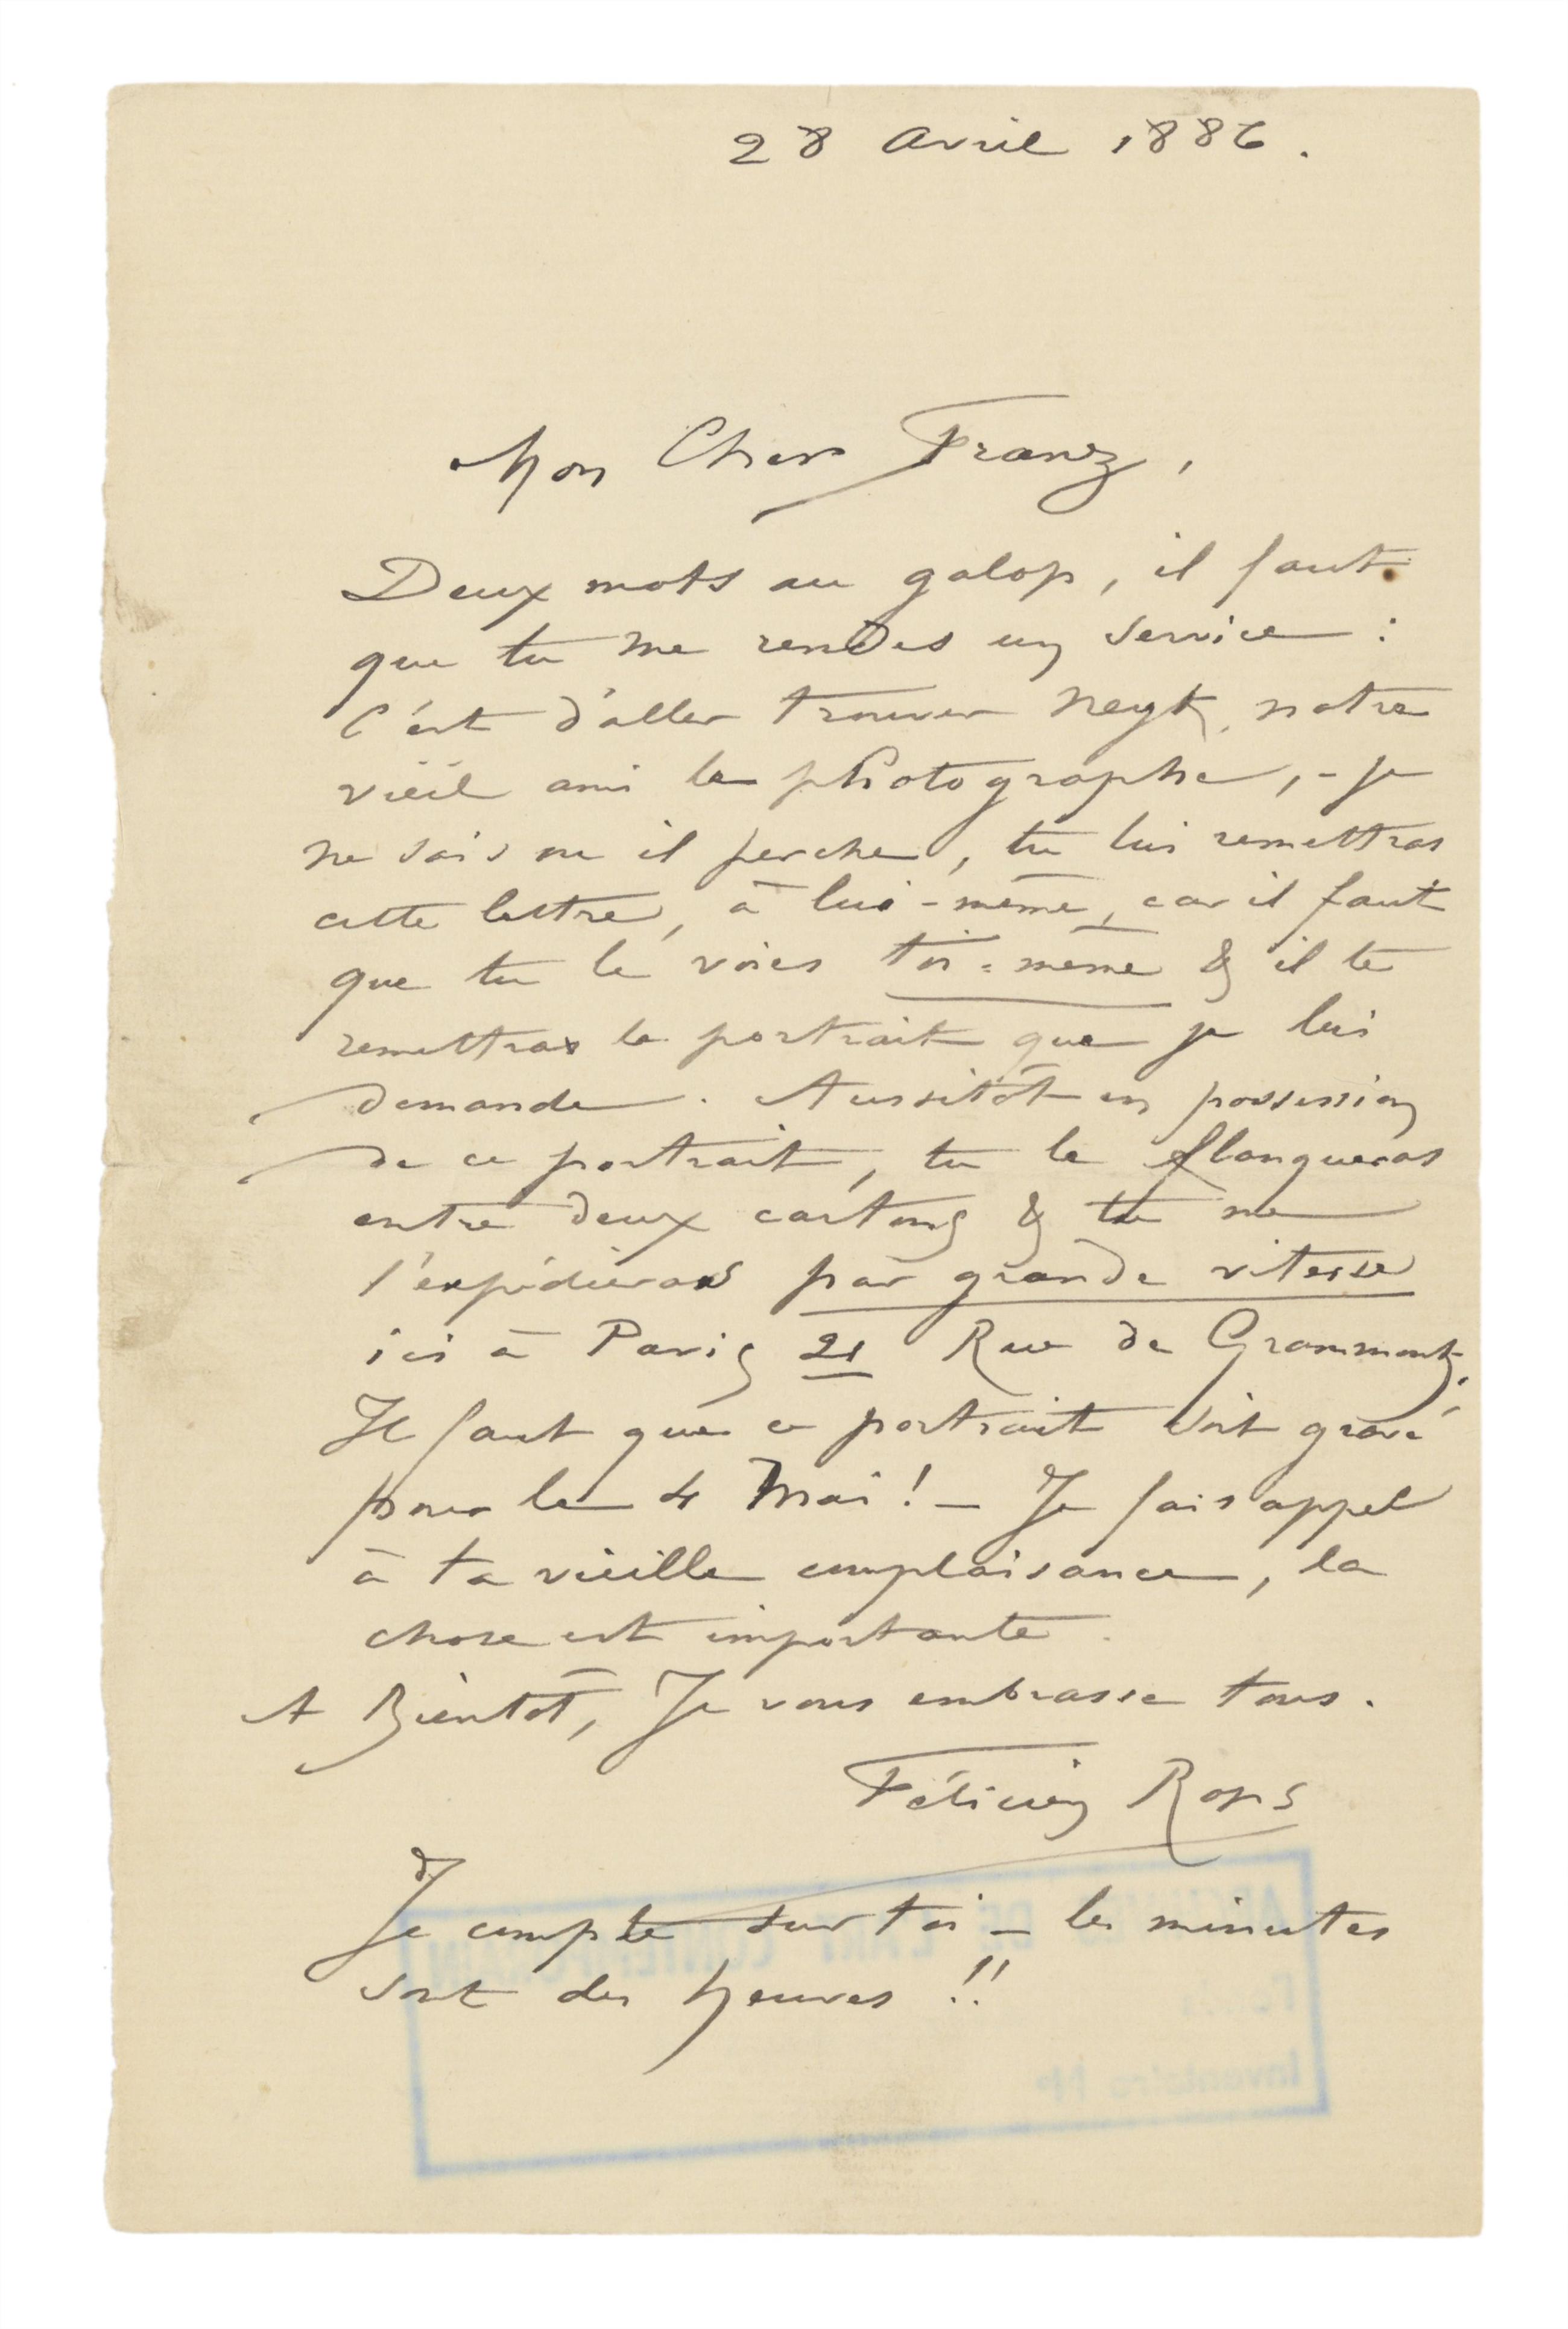 28 Avril 1886.
Mon Cher Franz,
Deux mots au galop, il faut
que tu me rendes un service :
C'est d'aller trouver Neyt, notre
vieil ami le photographe, – je
ne sais ou il perche, tu lui remettras
cette lettre, à lui-même, car il faut
que tu le voies toi=même & il te
remettras le portrait que je lui
demande. Aussitôt en possession
de ce portrait, tu le flanqueras
entre deux cartons & tu me
l'expédieras par grande vitesse
ici à Paris 21 Rue de Grammont.
Il faut que ce portrait soit gravé
pour le 4 Mai ! – Je fais appel
à ta vieille complaisance, la
chose est importante.
A Bientôt, Je vous embrasse tous.
Félicien Rops
Je compte sur toi – les minutes
sont des heures !!
ARCHIVES DE L'ART CONTEMPORAIN
Inventaire Nº